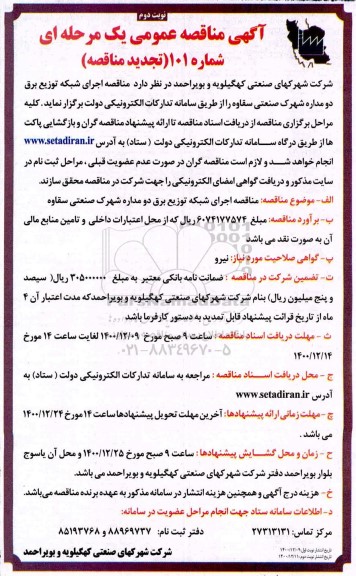 نوبت دوم
آگهی مناقصه عمومی یک مرحله ای
شماره ۱۰۱(تجدید مناقصه)
شرکت شهرکهای صنعتی کهگیلویه و بویراحمد در نظر دارد مناقصه اجرای شبکه توزیع برق
دو مداره شهرک صنعتی سقاوه را از طریق سامانه تدارکات الکترونیکی دولت برگزار نماید . کلیه
مراحل برگزاری مناقصه از دریافت اسناد مناقصه تا ارائه پیشنهاد مناقصه گران و بازگشایی پاکت
ها از طریق درگاه سامانه تدارکات الکترونیکی دولت ( ستاد) به آدرس www.setadiran.ir
انجام خواهد شد و لازم است مناقصه گران در صورت عدم عضویت قبلی ، مراحل ثبت نام در
سایت مذکور و دریافت گواهی امضای الکترونیکی را جهت شرکت در مناقصه محقق سازند.
الف- موضوع مناقصه: مناقصه اجرای شبکه توزیع برق دو مداره شهرک صنعتی سقاوه
ب- برآورد مناقصه: مبلغ ۶۰۷۴۱۷۷۵۷۴ ریال که از محل اعتبارات داخلی و تامین منابع مالی
آن به صورت نقد می باشد
پ- گواهی صلاحیت مورد نیاز: نیرو
ت- تضمین شرکت در مناقصه : ضمانت نامه بانکی معتبر به مبلغ ۳۰۵۰۰۰۰۰۰ ریال( سیصد
و پنج میلیون ریال) بنام شرکت شهرکهای صنعتی کهگیلویه و بویراحمد که مدت اعتبار آن ۴
ماه از تاریخ قرائت پیشنهاد قابل تمدید به دستور کارفرما باشد
ث - مهلت دریافت اسناد مناقصه : ساعت ۹ صبح مورخ ۱۴۰۰/۱۲/۰۹ لغایت ساعت ۱۴ مورخ
۱۴۰۰/۱۲/۱۴
ج- محل دریافت اسناد مناقصه : مراجعه به سامانه تدارکات الکترونیکی دولت ( ستاد) به
آدرس www.setadiran.ir
چ- مهلت زمانی ارائه پیشنهادها: آخرین مهلت تحویل پیشنهادها ساعت ۱۴ مورخ ۱۴۰۰/۱۲/۲۴
می باشد .
ح- زمان و محل گشایش پیشنهادها : ساعت ۹ صبح مورخ ۱۴۰۰/۱۲/۲۵ و محل آن یاسوج
بلوار بویراحمد دفتر شرکت شهرکهای صنعتی کهگیلویه و بویراحمد می باشد.
خ- هزینه درج آگهی و همچنین هزینه انتشار در سامانه مذکور به عهده برنده مناقصه می‌باشد.
د- اطلاعات سامانه ستاد جهت انجام مراحل عضویت در سامانه:
مرکز تماس: ۲۷۳۱۳۱۳۱ دفتر ثبت نام: ۸۸۹۶۹۷۳۷ و ۸۵۱۹۳۷۶۸
شرکت شهرکهای صنعتی کهگیلویه و بویراحمد
۰۲۱-۸۸۳۴۹۶۷۰-۵